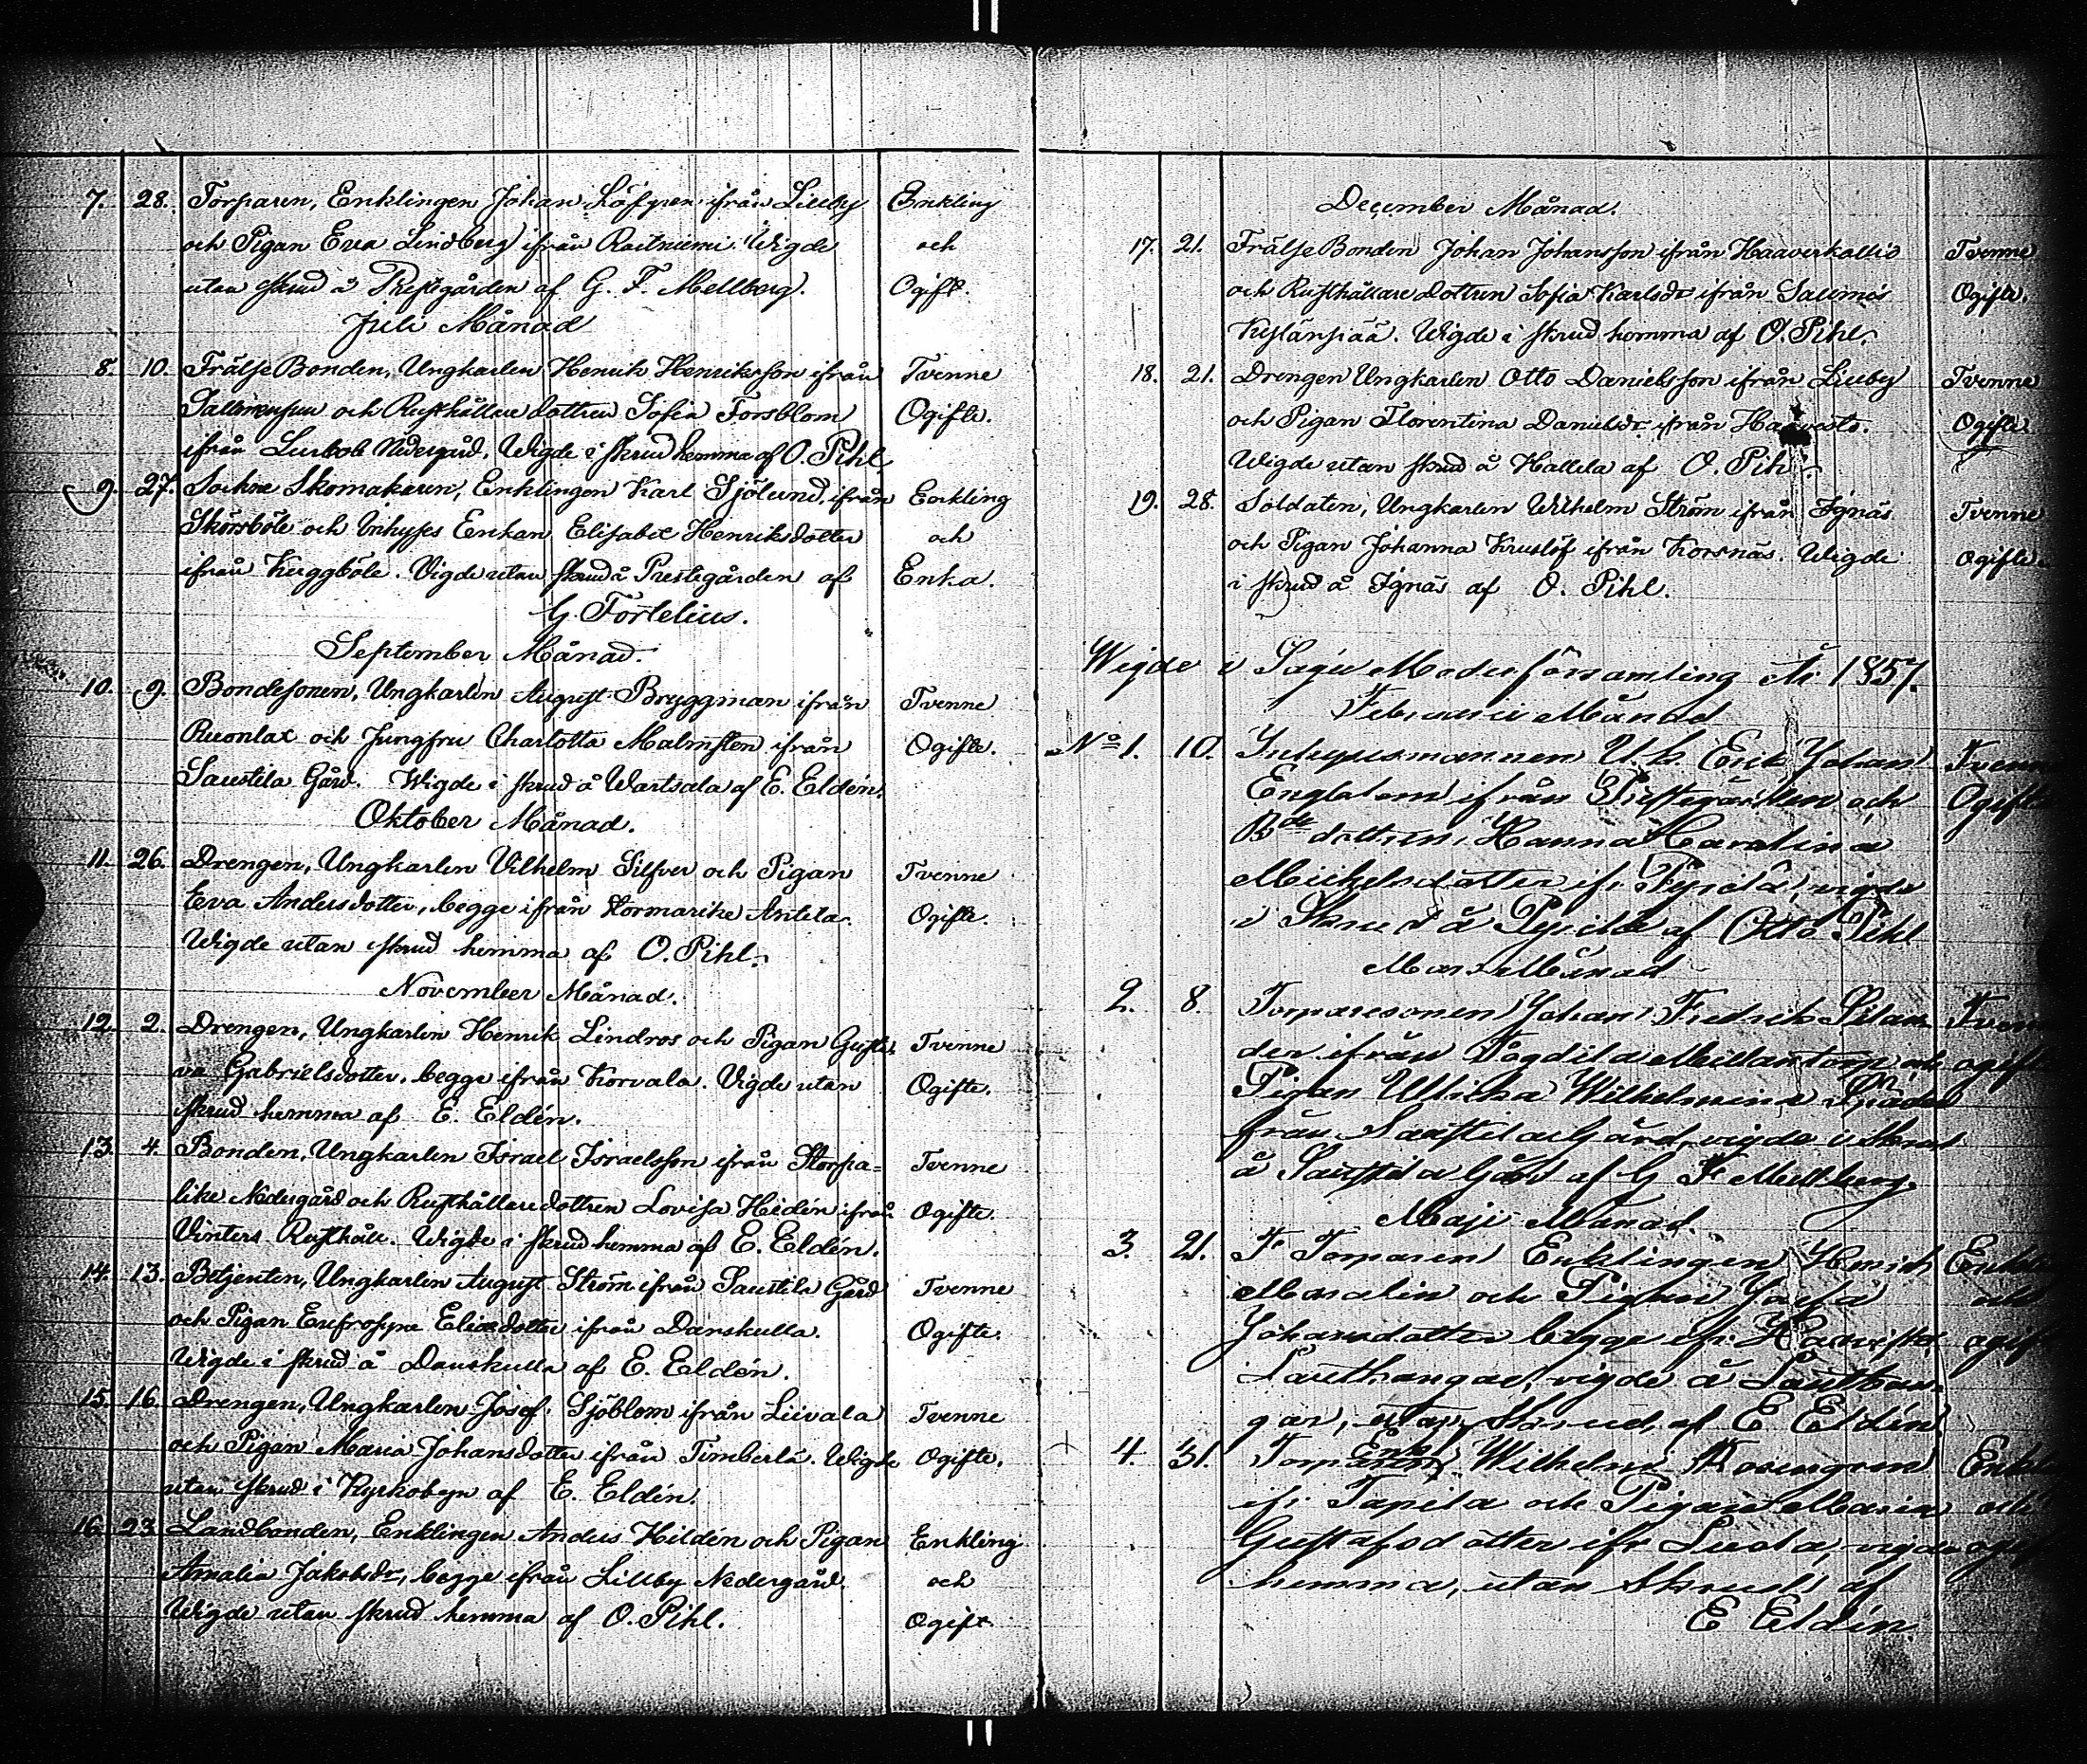 7. 28. Torparen, Enklingen Johan Löfgren ifrån Lillby Enkling
och Pigan Eva Lindberg ifrån Raitniemi. Wigde och
utan skrud å Prestgården af G. F. Mellberg. Ogift.
Juli Månad
8. 10. Frälse Bonden, Ungkarlen Henrik Henriksson ifrån Tvenne
och Rusthållare dottren Sofia Forsblom Ogifte.
ifrån Nedergård. Wigde i skrud hemma af O. Pihl
9. 27. Sockne Skomakaren, Enklingen Karl Sjölund, ifrån Enkling
Skörsböle och Inhyses Enkan Elisabet Henriksdotter och
ifrån Kuggböle. Vigde utan skrud å Prestegården af Enka.
G. Fortelius.
September Månad.
10. 9. Bondesonen, Ungkarlen August Bryggman ifrån Tvenne
Ruonlax och Jungfru Charlotta Malmsten ifrån Ogifte.
Saustila Gård. Wigde i skrud å Wartsala af E. Eldén.
Oktober Månad.
11. 26. Drengen, Ungkarlen Vilhelm Silfver och Pigan Tvenne
Eva Andersdotter, begge ifrån Stormarike Antela. Ogifte.
Wigde utan skrud hemma af O. Pihl.
November Månad.
12. 2. Drengen, Ungkarlen Henrik Lindros och Pigan Gusta Tvenne
va Gabrielsdotter, begge ifrån Korvala. Vigde utan Ogifte.
skrud hemma af E. Eldén.
13. 4. Bonden, Ungkarlen Israel Israelsson ifrån Storpa= Tvenne
like Nedergård och Rusthållare dottren Lovisa Hedén ifrån Ogifte.
Vinters Rusthåll. Wigde i skrud hemma af E. Eldén.
14. 13. Betjenten, Ungkarlen August Ström ifrån Saustila Gård Tvenne
och Pigan Eufrosyne Eliasdotter ifrån Danskulla. Ogifte.
Wigde i skrud å Danskulla af E. Eldén.
15. 16. Drengen, Ungkarlen Josef Sjöblom ifrån Liivala Tvenne
och Pigan Maria Johansdotter ifrån Timberla. Wigde Ogifte.
utan skrud i Kyrkobyn af E. Eldén.
16. 23. Landbonden, Enklingen Anders Hildén och Pigan Enkling
Amalia Jakobsdr, begge ifrån Lillby Nedergård. och
Wigde utan skrud hemma af O. Pihl. Ogift
December Månad.
17. 21. Frälse Bonden Johan Johansson ifrån Haaverkallio Tvenne
och Rusthållare dottren Sofia Karlsdr ifrån Salmis Ogifte.
Wigde i skrud hemma af O. Pihl.
18. 21. Drengen Ungkarlen Otto Danielsson ifrån Lillby Tvenne
och Pigan Florentina Danielsdr ifrån Haavisto. Ogifte.
Wigde utan skrud å Hallela af O. Pihl.
19. 28. Soldaten, Ungkarlen Wilhelm Ström ifrån Ignäs Tvenne
och Pigan Johanna Kruslöf ifrån Korsnäs. Wigde Ogifte.
i skrud å Ignäs af O. Pihl.
Wigde i Sagu Moderförsamling År 1857.
Februari Månad
No 1. 10. Inhysesmannen U.k. Erik Johan Tvenne
Englblom ifrån Prestgården och Ogifte
Bde dottren Hanna Carolina
Mickelsdotter ifr. Pyidlä, vigde
i Skrud å Pyidlä af Otto Pihl
Mars Månad
2. 8. Torparesonen Johan Fredrik Silan Tvenne
der ifrån Fogdila Mellantorp och ogifte
Pigan Ulrika Wilhelmina
från Saustila Gård, vigde i skrud
å Saustila Gård af G F Mellberg.
Maji Månad.
3. 21. F Torparen Enklingen Henrik Enkling
Monolin och Pigan Josefa och
Johansdotter begge ifr. Haavisto ogift
Lauthangar, vigde å Lauthan=
gar, utan skrud, af E Eldén.
4. 31. Torparen Enkl Wilhelm Rosengren Enkling
ifr. Tapila och Pigan Maria och
Gustafsdotter ifr Lusla, vigde ogift
hemma, utan Skrud, af
E Eldén.